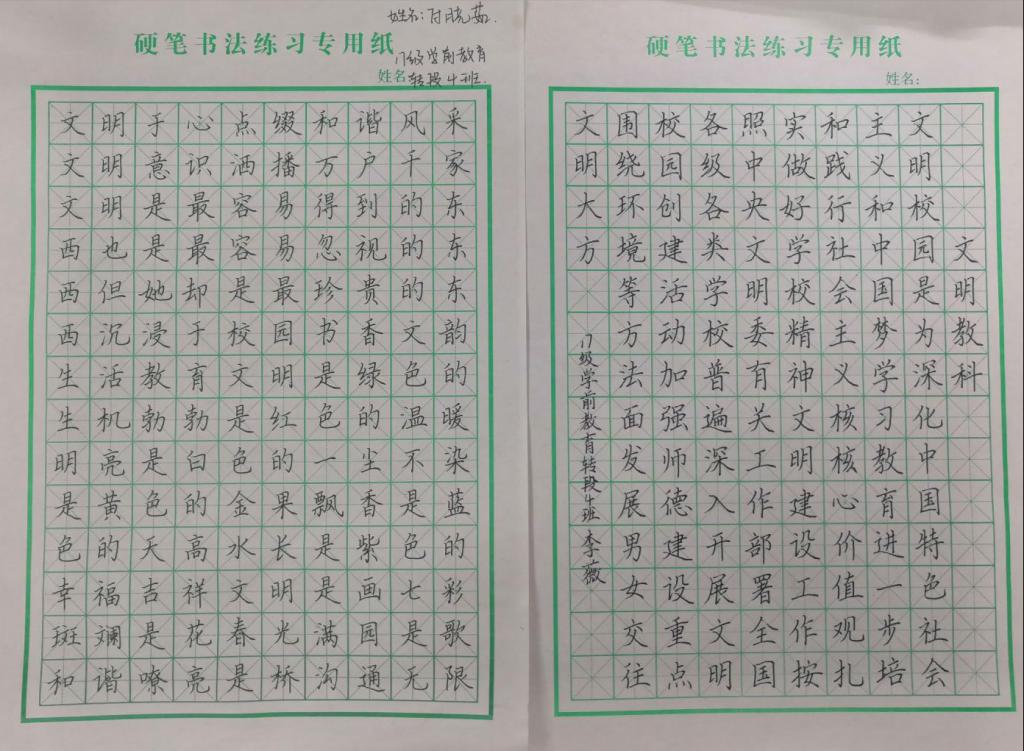 姓名:付晓茹.
17级学前教育
转段4班.
硬笔书法练习专用纸
姓名
文明于心点缀和谐风采
文明意识洒播万户千家
文明是最容易得到的东
西也是最容易忽视的东
西但她却是最珍贵的东
西沉浸于校园书香文韵
生活教育文明是绿色的
生机勃勃是红色的温暖
明亮是白色的一尘不染
是黄色的金果飘香是蓝
色的天高水长是紫色的
幸福吉祥文明是画七彩
斑斓是花春光满园是歌
和谐嘹亮是桥沟通无限
硬笔书法练习专用纸
姓名:
文明教科
文明校园是为深化中国特色社会
主义和中国梦学习教育进一步培
和践行社会主义核核心价值观扎
实做好学校精神文明建设工作按
照中央文明委有关工作部署全国
各级各类学校普遍深入开展文明
校园创建活动加强师德建设重点
围绕环境等方法面发展男女交往
文明大方
17级学前教育转段4班 李薇